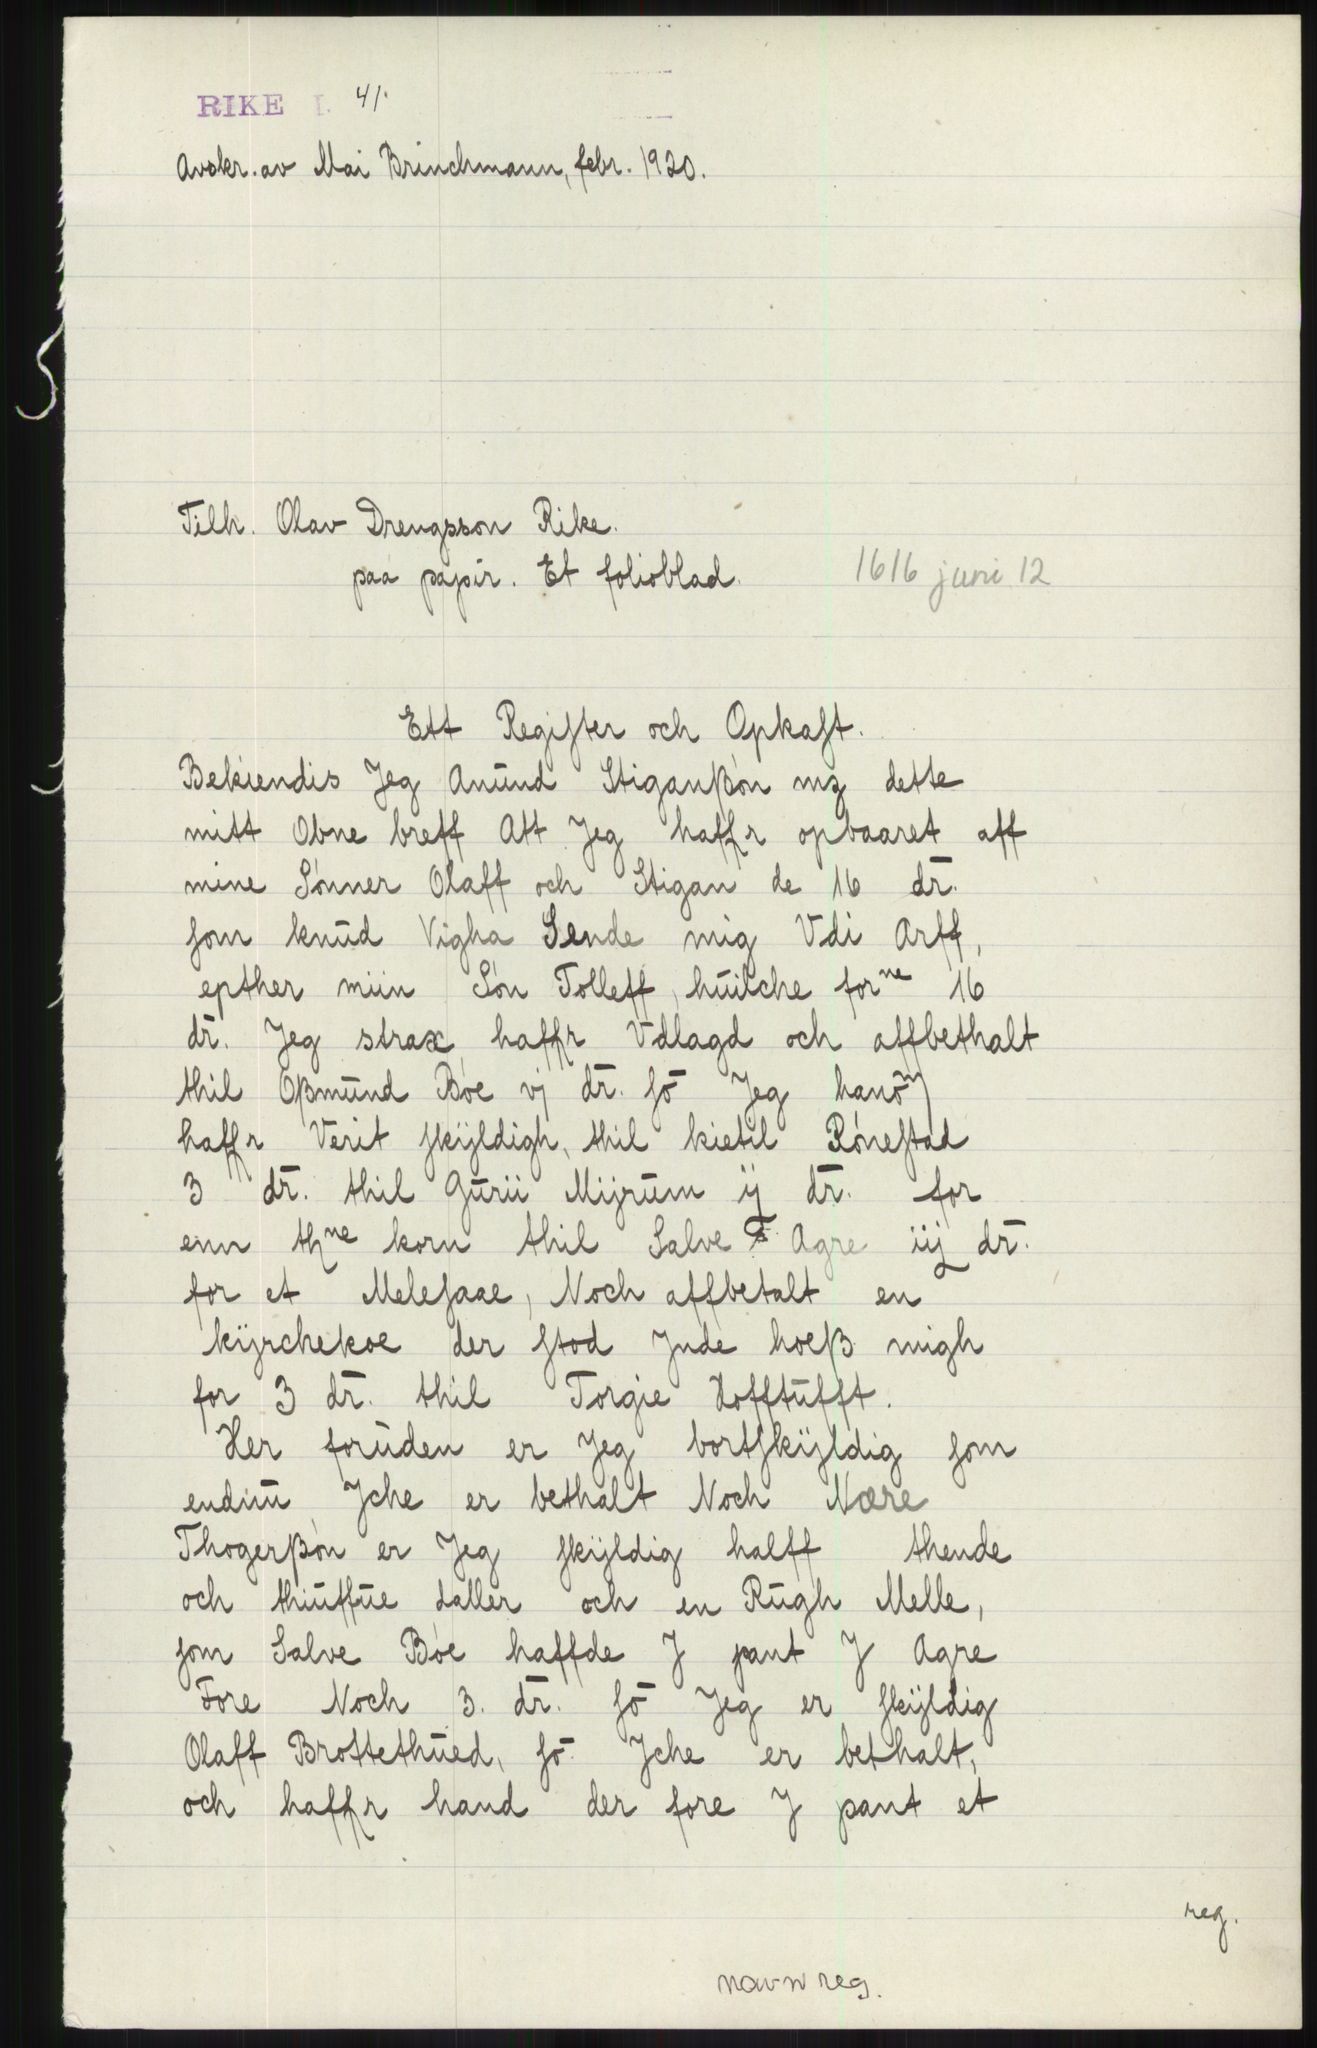 RIKE I. 41.
Avskr. av Mai Brinchmann, febr. 1920.
Tilh. Olav Drengsson Rike.
paa papir. Et folioblad.
1616 juni 12
Ett Regiſter och Opkaſt.
Bekiendis Jeg Anŭnd Stiganßøn mz dette
mitt Obne breff Att Jeg haffr opbaaret aff
mine Sønner Olaff och Stigan de 16 dr̄.
ſom knŭd Vigha Sende mig Vdi Arff,
epther miin Søn Tolleff, hŭilche forne 16
dr̄. Jeg strax haffr Vdlagd och affbethalt
thil Oßmŭnd Bøe vj dr̄. ſō Jeg hanōm
haffr Verit ſkÿldigh, thil kietil Røneſtad
3 dr̄. thil Gŭrii Mÿrŭm ij dr̄. for
enn thne korn thil Salve Agre iij dr̄.
for et Meleſaae, Noch affbetalt en
kÿrchekoe der ſtod Jnde hoeß migh
for 3 dr̄. thil Torgie Hofftŭfft.
Her forŭden er Jeg bortſkÿldig ſom
endnŭ Jche er bethalt Noch Nære
Thogerßøn er Jeg ſkÿldig halff thende
och thiŭffŭe daller och en Rŭgh Melle,
ſom Salve Bøe haffde J pant J Agre
Fore Noch 3. dr̄. ſō Jeg er ſkÿldig
Olaff Brottethŭed, ſō Jche er bethalt,
och haffr hand der fore J pant et
reg.
navnreg.